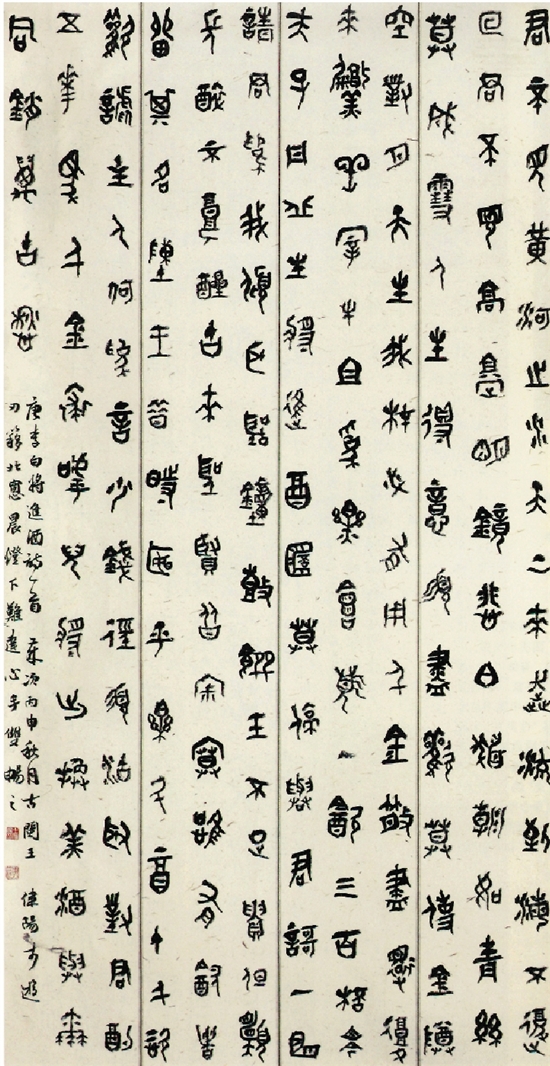 君不見黃河之水天上來奔流到海不復
回君不見高堂明鏡悲白髮朝如青絲
莫成雪人生得意須盡歡莫使金樽
空對月天生我材必有用千金散盡還復
來烹羊宰牛且為樂會須一飲三百杯岑
夫子丹丘生將進酒杯莫停與君歌一曲
請君為我傾耳聽鐘鼓饌玉不足貴但願
長醉不願醒古來聖賢皆寂寞惟有飲者
留其名陳王昔時宴平樂斗酒十千恣
歡謔主人何為言少錢徑須沽取對君酌
五花馬千金裘呼兒將出換美酒與爾
同銷萬古愁
唐李白將進酒詩一首 歲次丙申秋月古閩王
北窗晨燈下 心手雙暢